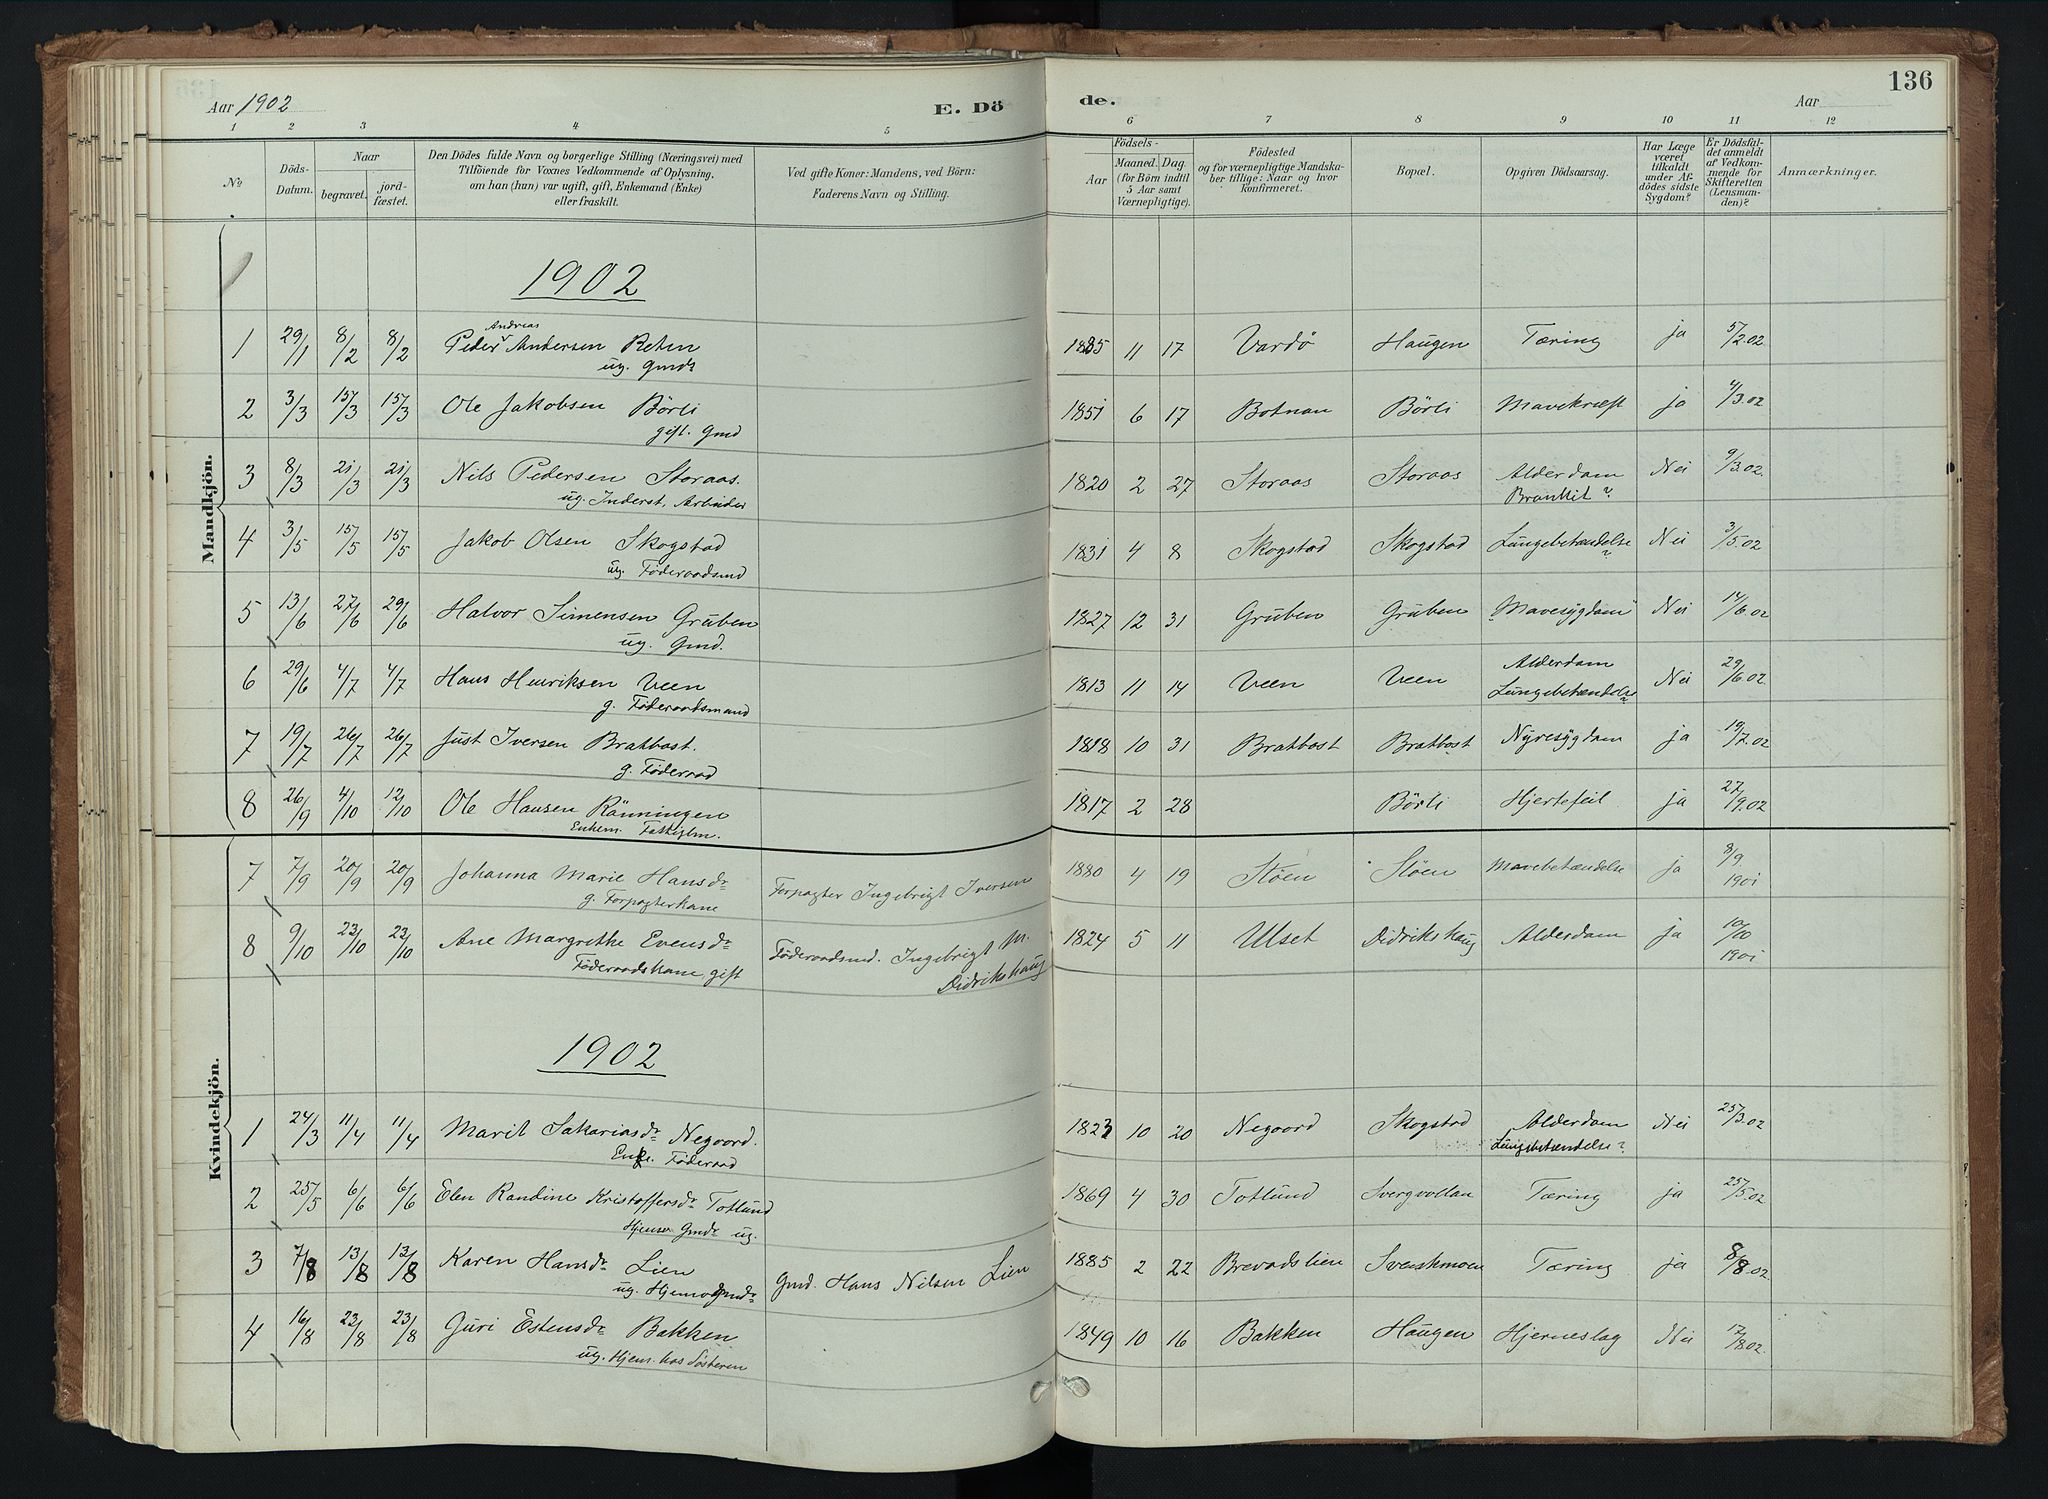 136
Aar 1902 E. Dö de. Aar
1 2 3 4 5 6 7 8 9 10 11 12
No Döds-Datum. Naar begravet. jordfæstet. Den Dödes fulde Navn og borgerlige Stilling (Næringsvei) med Tilföiende for Voxnes Vedkommende af Oplysning, om han (hun) var ugift, gift, Enkemand (Enke) eller fraskilt. Ved gifte Koner: Mandens, ved Börn: Faderens Navn og Stilling. Födsels- Aar Maaned. Dag. (for Börn indtil 5 Aar samt Værnepligtige). Födested og for værnepligtige Mandskaber tillige: Naar og hvor konfirmeret. Bopæl. Opgiven Dödsaarsag. Har Læge været tilkaldt under Afdödes sidste Sygdom? Er Dödsfaldet anmeldt af Vedkommende for Skifteretten (Lensmanden)? Anmærkninger.
Mandkjön.
1902
Andreas
1 29/1 8/2 8/2 Peder Andersen Reten 1885 11 17 Vardø Haugen Tæring ja 5/2.02
ug. Gmds
2 3/3 15/3 15/3 Ole Jakobsen Börli 1851 6 17 Botnan Börli Mavekræft ja 4/3.02
gift. Gmd
3 8/3 21/3 21/3 Nils Pedersen Storaas. 1820 2 27 Storaas Storaas Alderdom Nei 9/3.02
ug. Inderst, Arbeider Bronkit?
4 3/5 15/5 15/5 Jakob Olsen Skogstad 1831 4 8 Skogstad Skogstad Lungebetændelse? Nei 3/5.02
ug. Föderaadsmd
5 13/6 27/6 29/6 Halvor Simensen Gruben 1827 12 31 Gruben Gruben "Mavesygdom" Nei 14/6.02
ug. Gmd.
6 29/6 4/7 4/7 Hans Henriksen Veen 1813 11 14 Veen Veen Alderdom Nei 29/6.02
g. Föderaadsmand Lungebetændelse?
7 19/7 26/7 26/7 Just Iversen Bratbost. 1818 10 31 Bratbost Bratbost Nyresygdom ja 19/7.02
g. Föderaad
8 26/9 4/10 12/10 Ole Hansen Rönningen 1817 2 28 Börli Hjertefeil ja 27/9.02
Enkem. Fattiglm.
Kvindekjön.
7 7/9 20/9 20/9 Johanna Marie Hansdr Forpagter Ingebrigt Iversen 1880 4 19 Støen Støen Mavebetændelse ja 8/9 1901
g. Forpagterkone
8 9/10 23/10 23/10 Ane Margrethe Evensdr Föderaadsmd. Ingebrigt M. Didrikshaug 1824 5 11 Ulset Didrikshaug Alderdom ja 10/10 1901
Föderaadskone, gift
1902
1 24/3 11/4 11/4 Marit Sakariasdr Negaard. 1823 10 20 Negaard Skogstad Alderdom Nei 25/3.02
Enke. Föderaad Lungebetændelse?
2 25/5 6/6 6/6 Elen Randine Kristoffersdr Totlund 1869 4 30 Totlund Svergvollan Tæring ja 25/5.02
Hjemme Gmdr ug.
3 7/8 13/8 13/8 Karen Hansdr Lien Gmd. Hans Nilsen Lien 1885 2 22 Brevadslien Svenskmoen Tæring ja 8/8.02
ug. Hjemme Gmdr
4 16/8 23/8 23/8 Guri Estensdr Bakken 1849 10 16 Bakken Haugen Hjerneslag Nei 17/8 02.
ug. Hjem. hos Søsteren